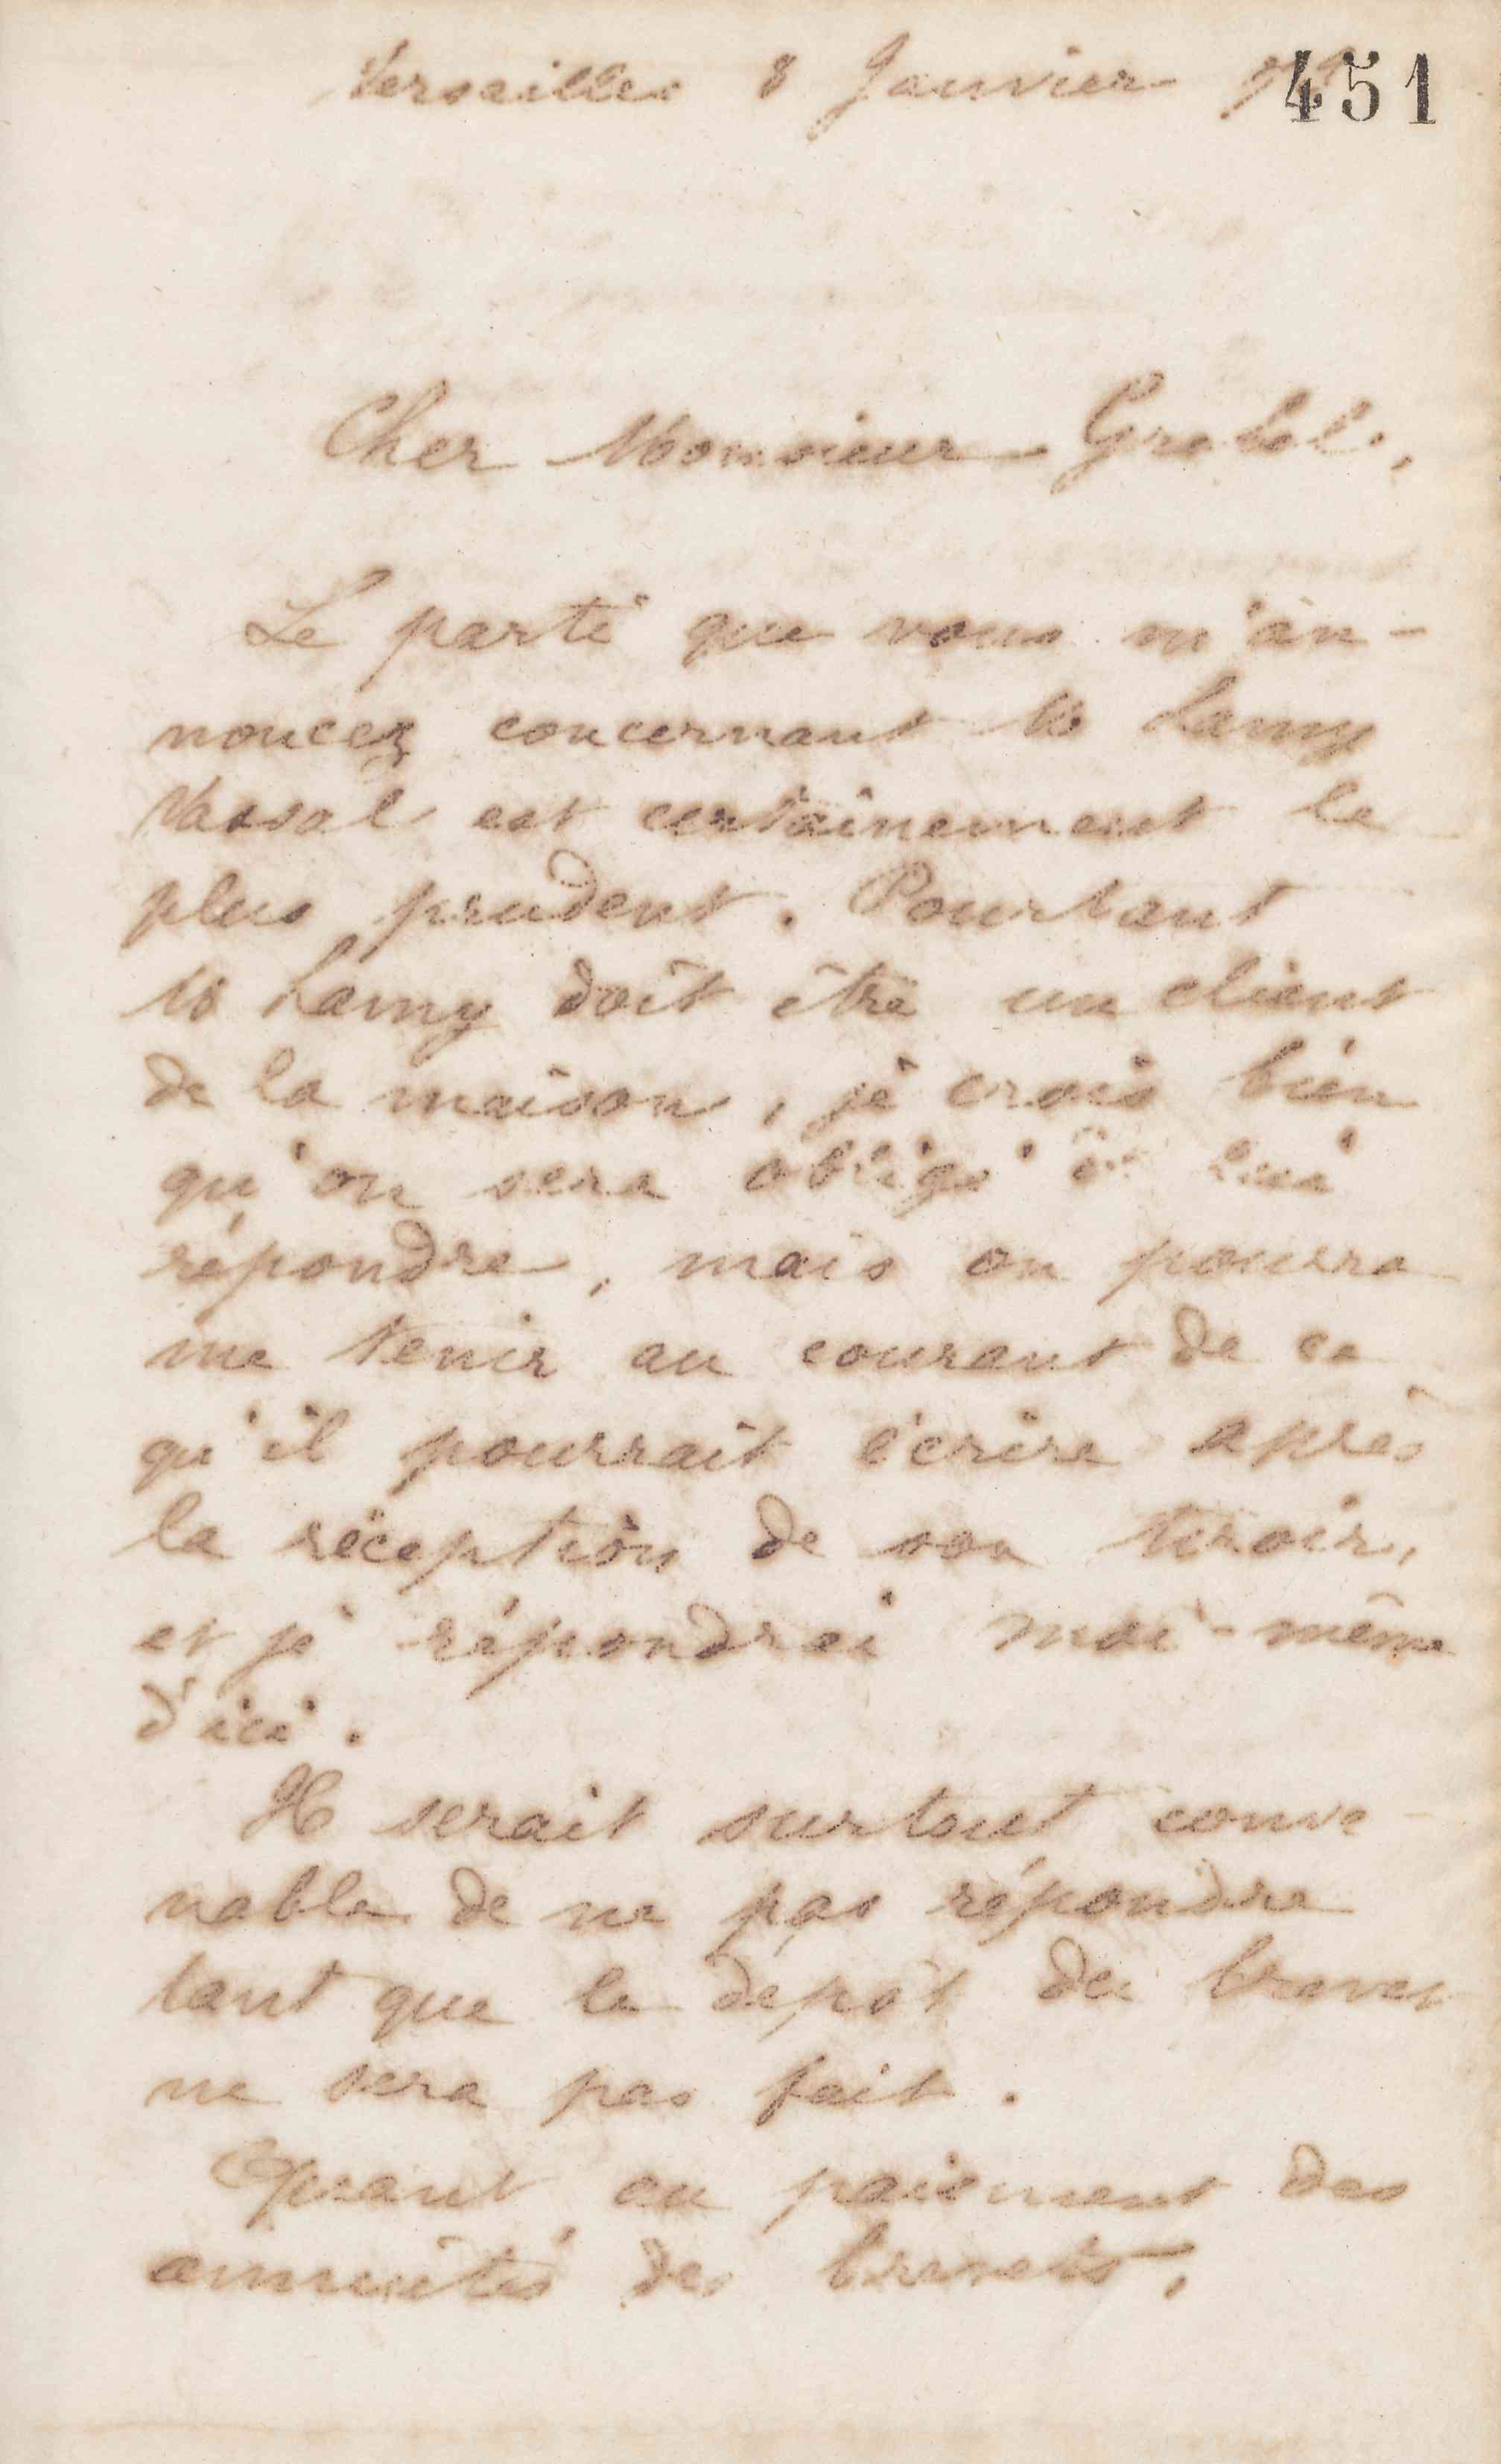 Versailles 8 Janvier
451
Cher Monsieur Grebel,
Le parti que vous m'an-
noncez concernant M Lamy
Vassal est certainement le
plus prudent. Pourtant
M Lamy doit être un client
de la maison, je crois bien
qu'on sera obligé à lui
répondre, mais on pourra
me tenir au courant de ce
qu'il pourrait écrire après
la réception de son tiroir,
et je répondrai moi-même
d'ici.
Il serait surtout conve-
nable de ne pas répondre
tant que le dépôt du brevet
ne sera pas fait.
Quant au paiement des
annuités des brevets,